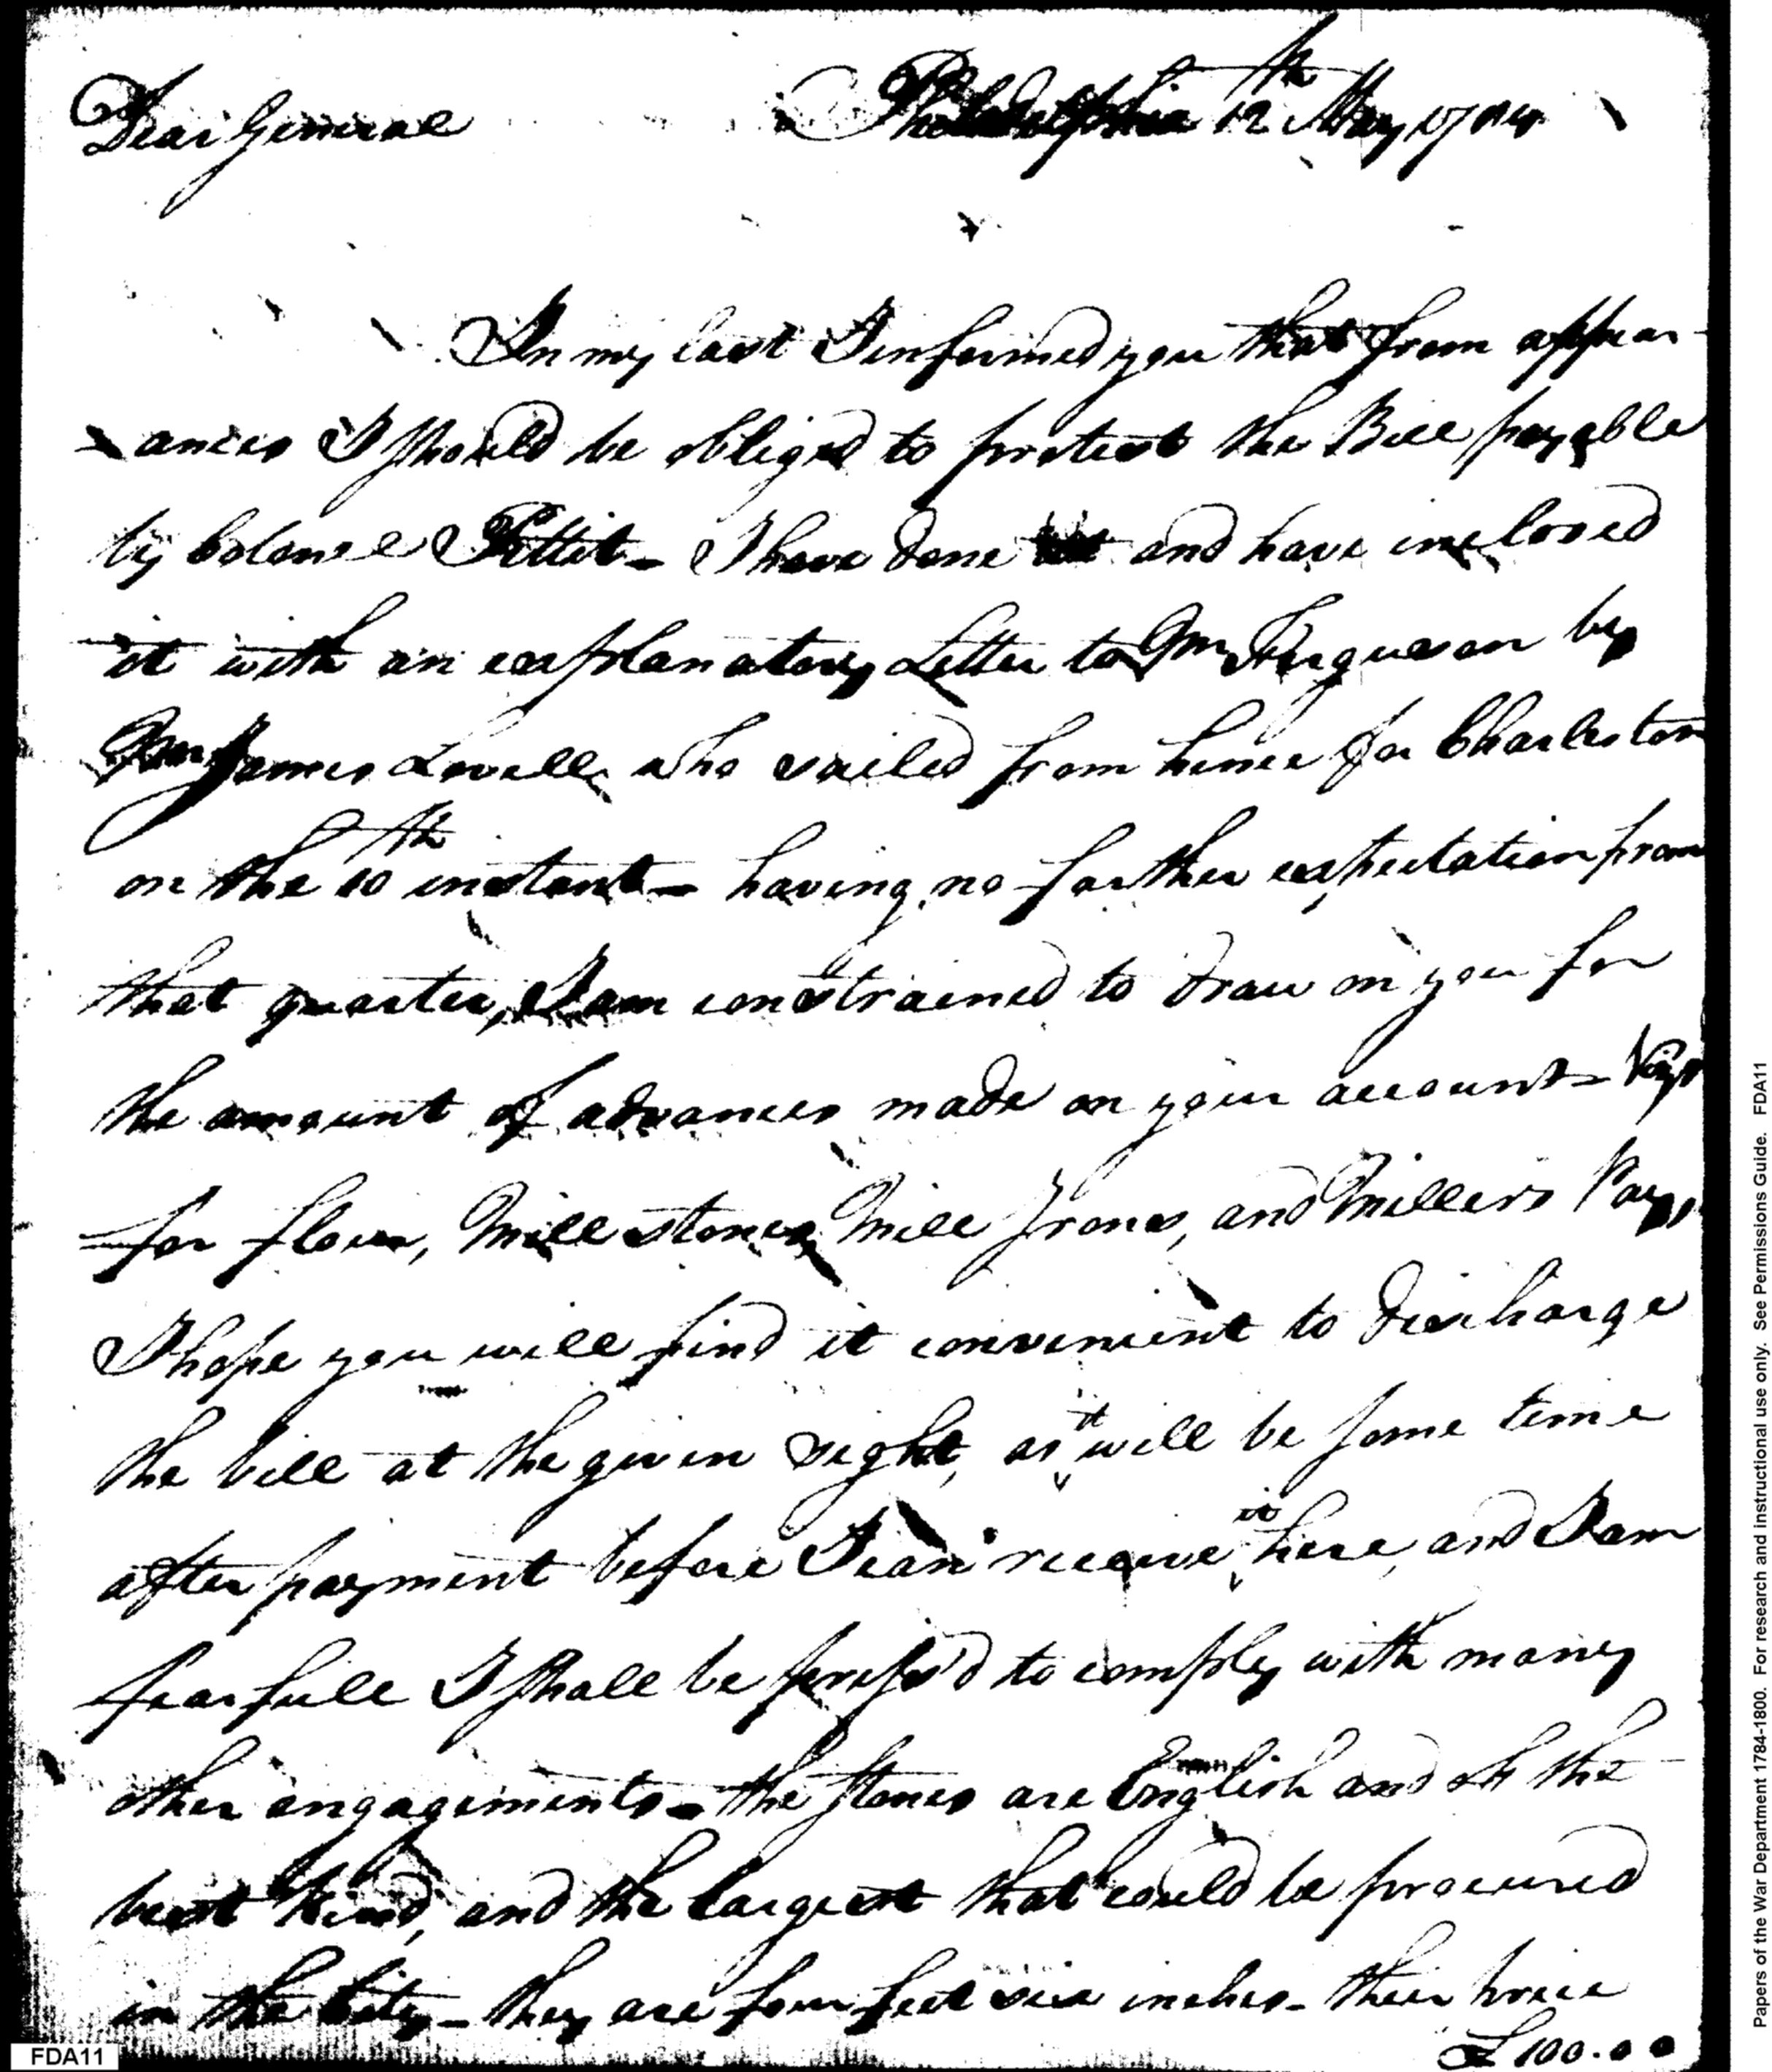 Dear General
Philadelphia 12th May 1784
In my last I informed you that from appear-
ances I should be obliged to protest the Bill payable
by Colonel Pettit - I have done and have inclosed
it with an explanatory Letter to Mr Ferguson by
Mr James Lovell, who sailed from hence for Charleston
on the 10th instant - having no farther expectation from
that quarter, I am constrained to draw on you for
the amount of advances made on your account -
for flour, Mill stones, Mill Irons, and Millers Pay,
I hope you will find it convenient to discharge
the bill at the given sight, as it will be some time
after payment before I can receive it here, and I am
fearfull I shall be press'd to comply with many
other engagements - the stones are English and of the
best kind, and the largest that could be procured
in the City - they are four feet six inches - their price
£100.0 0
FDA11
Papers of the War Department 1784-1800. For research and instructional use only. See Permissions Guide. FDA11